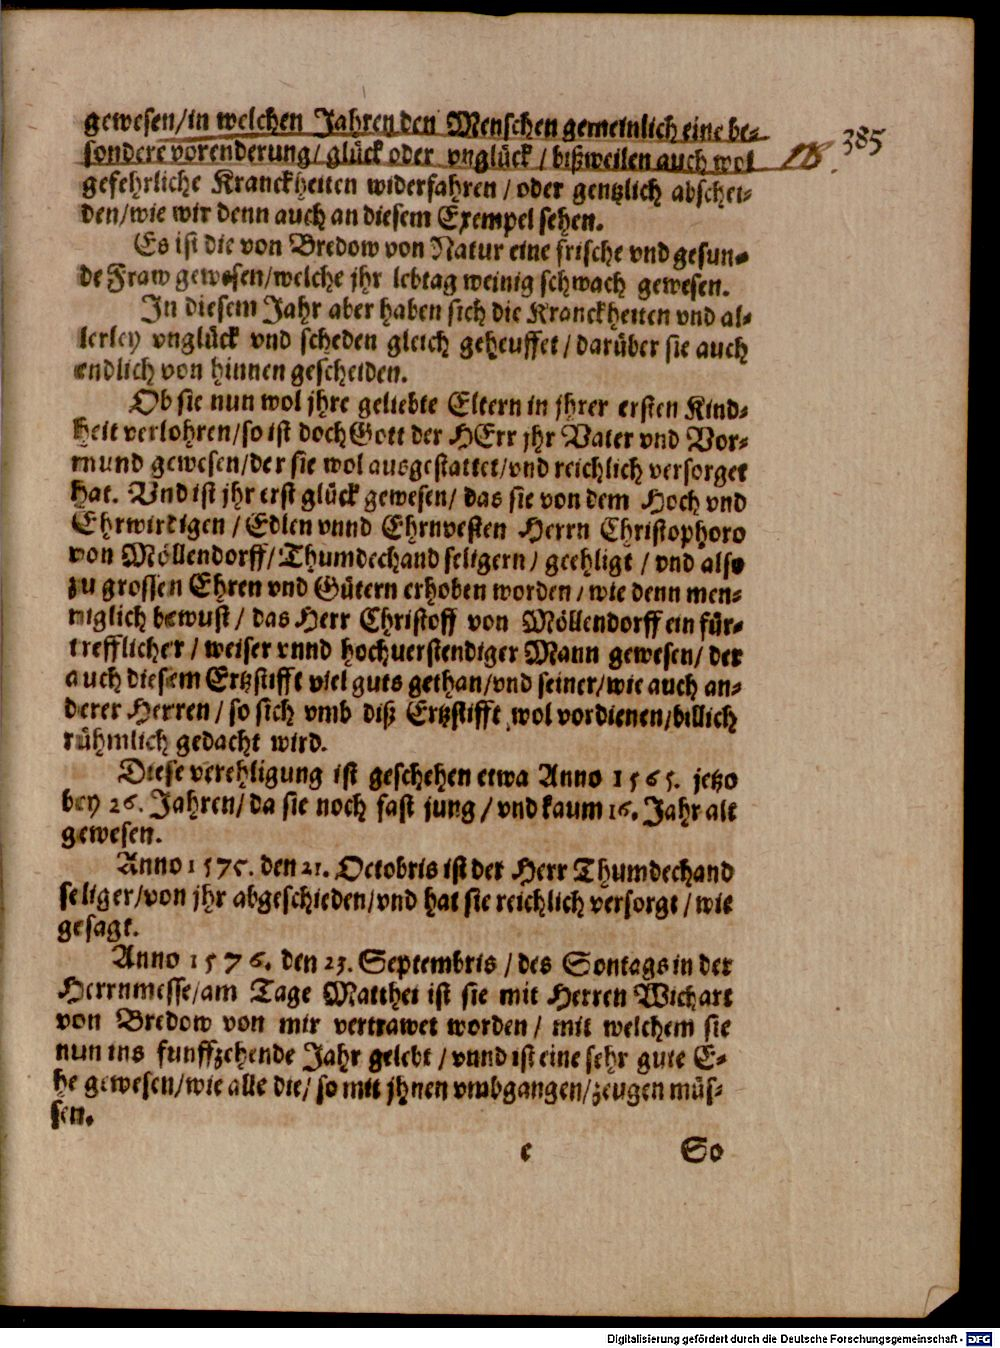 gewesen/in welchen Jahren den Menschen gemeinlich eine be-
sondere vorenderung/ glück oder vnglück / bißweilen auch wol
385
gefehrliche Kranckheiten widerfahren / oder gentzlich abschei-
den/wie wir denn auch an diesem Exempel sehen.
Es ist die von Bredow von Natur eine frische vnd gesun-
de Fraw gewesen/welche jhr lebtag weinig schwach gewesen.
In diesem Jahr aber haben sich die Kranckheiten vnd al-
lerley vnglück vnd scheden gleich geheuffet / darüber sie auch
endlich von hinnen gescheiden.
Ob sie nun wol jhre geliebte Eltern in jhrer ersten Kind-
heit verlohren/so ist doch Gott der HErr jhr Vater vnd Vor-
mund gewesen/der sie wol ausgestattet/vnd reichlich versorget
hat. Vnd ist jhr erst glück gewesen/ das sie von dem Hoch vnd
Ehrwirdigen / Edlen vnnd Ehrnvesten Herrn Christophoro
von Möllendorff/ Thumdechand seligern / geehligt / vnd also
zu grossen Ehren vnd Gütern erhoben worden / wie denn men-
niglich bewust / das Herr Christoff von Möllendorff ein für-
trefflicher / weiser vnnd hochuerstendiger Mann gewesen/ der
auch diesem Ertzstifft viel guts gethan/vnd seiner/wie auch an-
derer Herren / so sich vmb diß Ertzstifft wol vordienen/billich
rühmlich gedacht wird.
Diese verehligung ist geschehen etwa Anno 1565. jetzo
bey 26. Jahren/ da sie noch fast jung / vnd kaum 16. Jahr alt
gewesen.
Anno 1575. den 21. Octobris ist der Herr Thumdechand
seliger/von jhr abgeschieden/vnd hat sie reichlich versorgt / wie
gesagt.
Anno 1576. den 23. Septembris / des Sontags in der
Herrnmesse/am Tage Matthei ist sie mit Herren Wichart
von Bredow von mir vertrawet worden / mit welchem sie
nun ins funffzehende Jahr gelebt / vnnd ist eine sehr gute E-
he gewesen/wie alle die/ so mit jhnen vmbgangen/zeugen müs-
sen.
e So
Digitalisierung gefördert durch die Deutsche Forschungsgemeinschaft - DFG